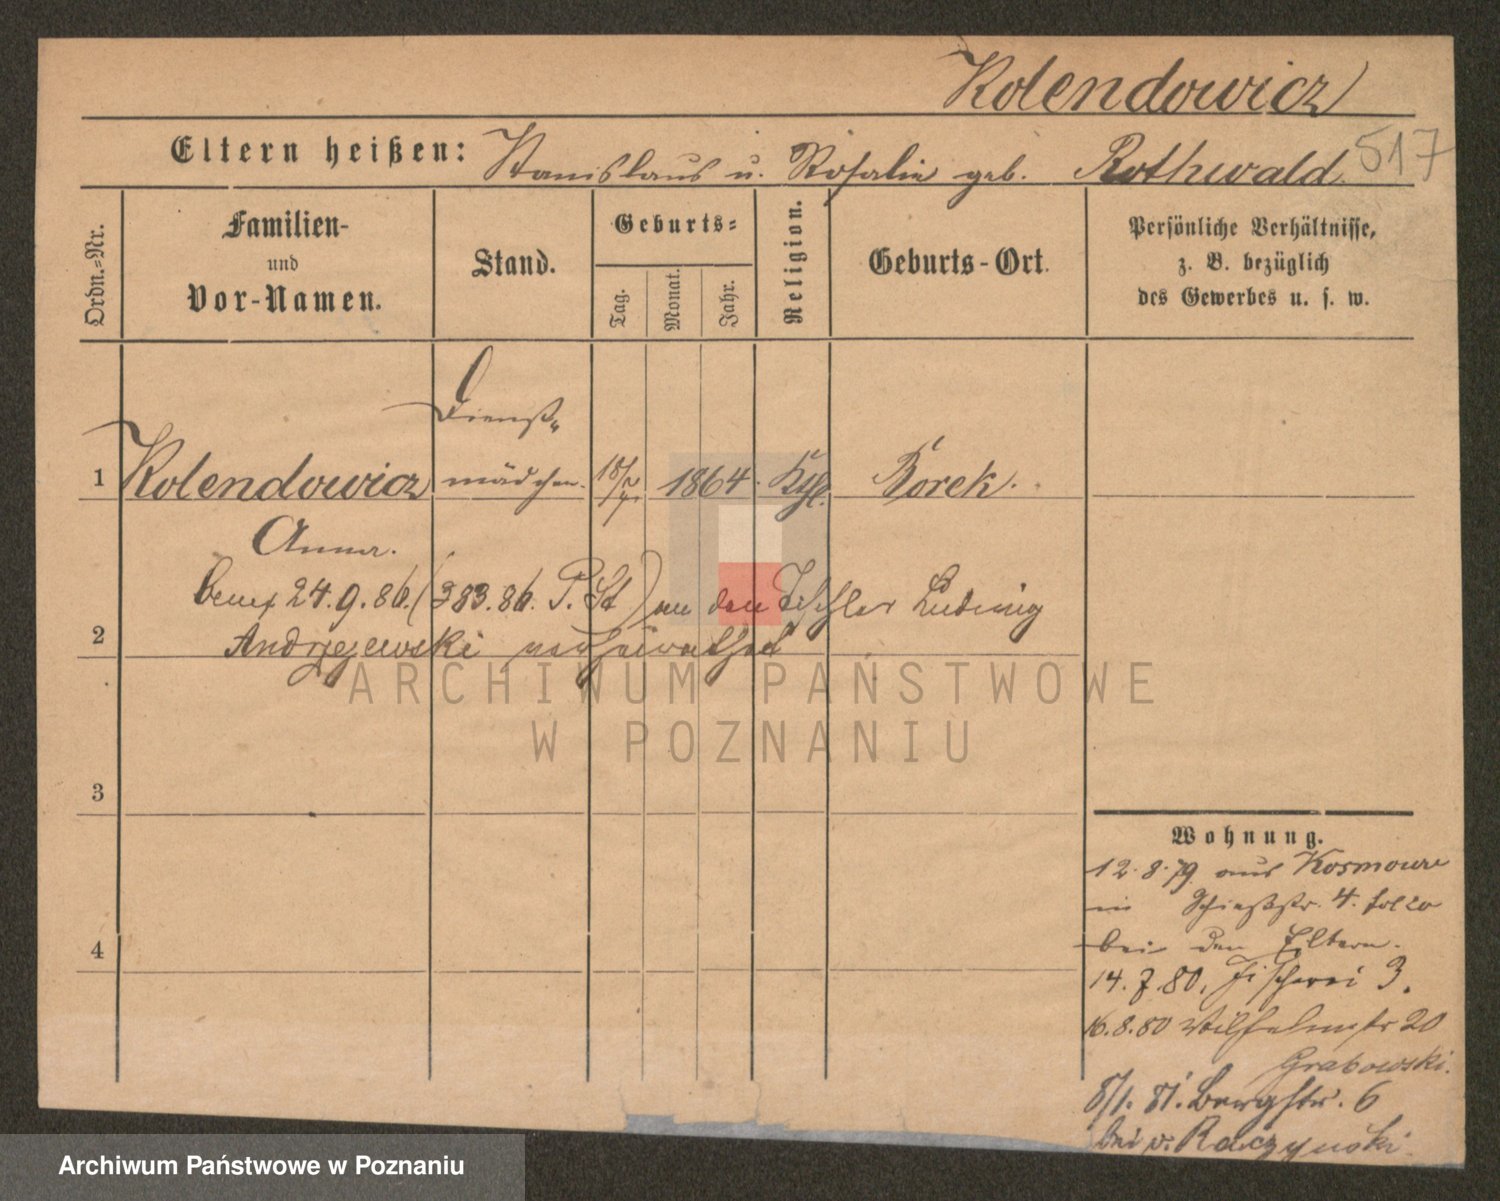 Kolendowicz
517
Eltern heißen: Stanislaus u. Rosalie geb. Rothwald.
Ordn.-Nr.
Familien-
und
Vor-Namen.
Stand.
Geburts-
Tag.
Monat.
Jahr.
Religion.
Geburts-Ort.
Persönliche Verhältnisse,
z. B. bezüglich
des Gewerbes u. s. w.
Dienst-
1 Kolendowicz mädchen. 18/7 1864. Kth. Borek.
Anna.
24.9.86. (383.86. P. St) an den Tischler Ludwig
2 Andrzejewski verheirathet
3
4
Wohnung.
12.8.79 aus
in Schießstr. 4.
bei den Eltern.
14.7.80. Fischerei 3.
16.8.80 Wilhelmstr 20
Grabowski.
8/1. 81. Bergstr. 6
bei v. Raczynski.
ARCHIWUM PAŃSTWOWE
W POZNANIU
Archiwum Państwowe w Poznaniu